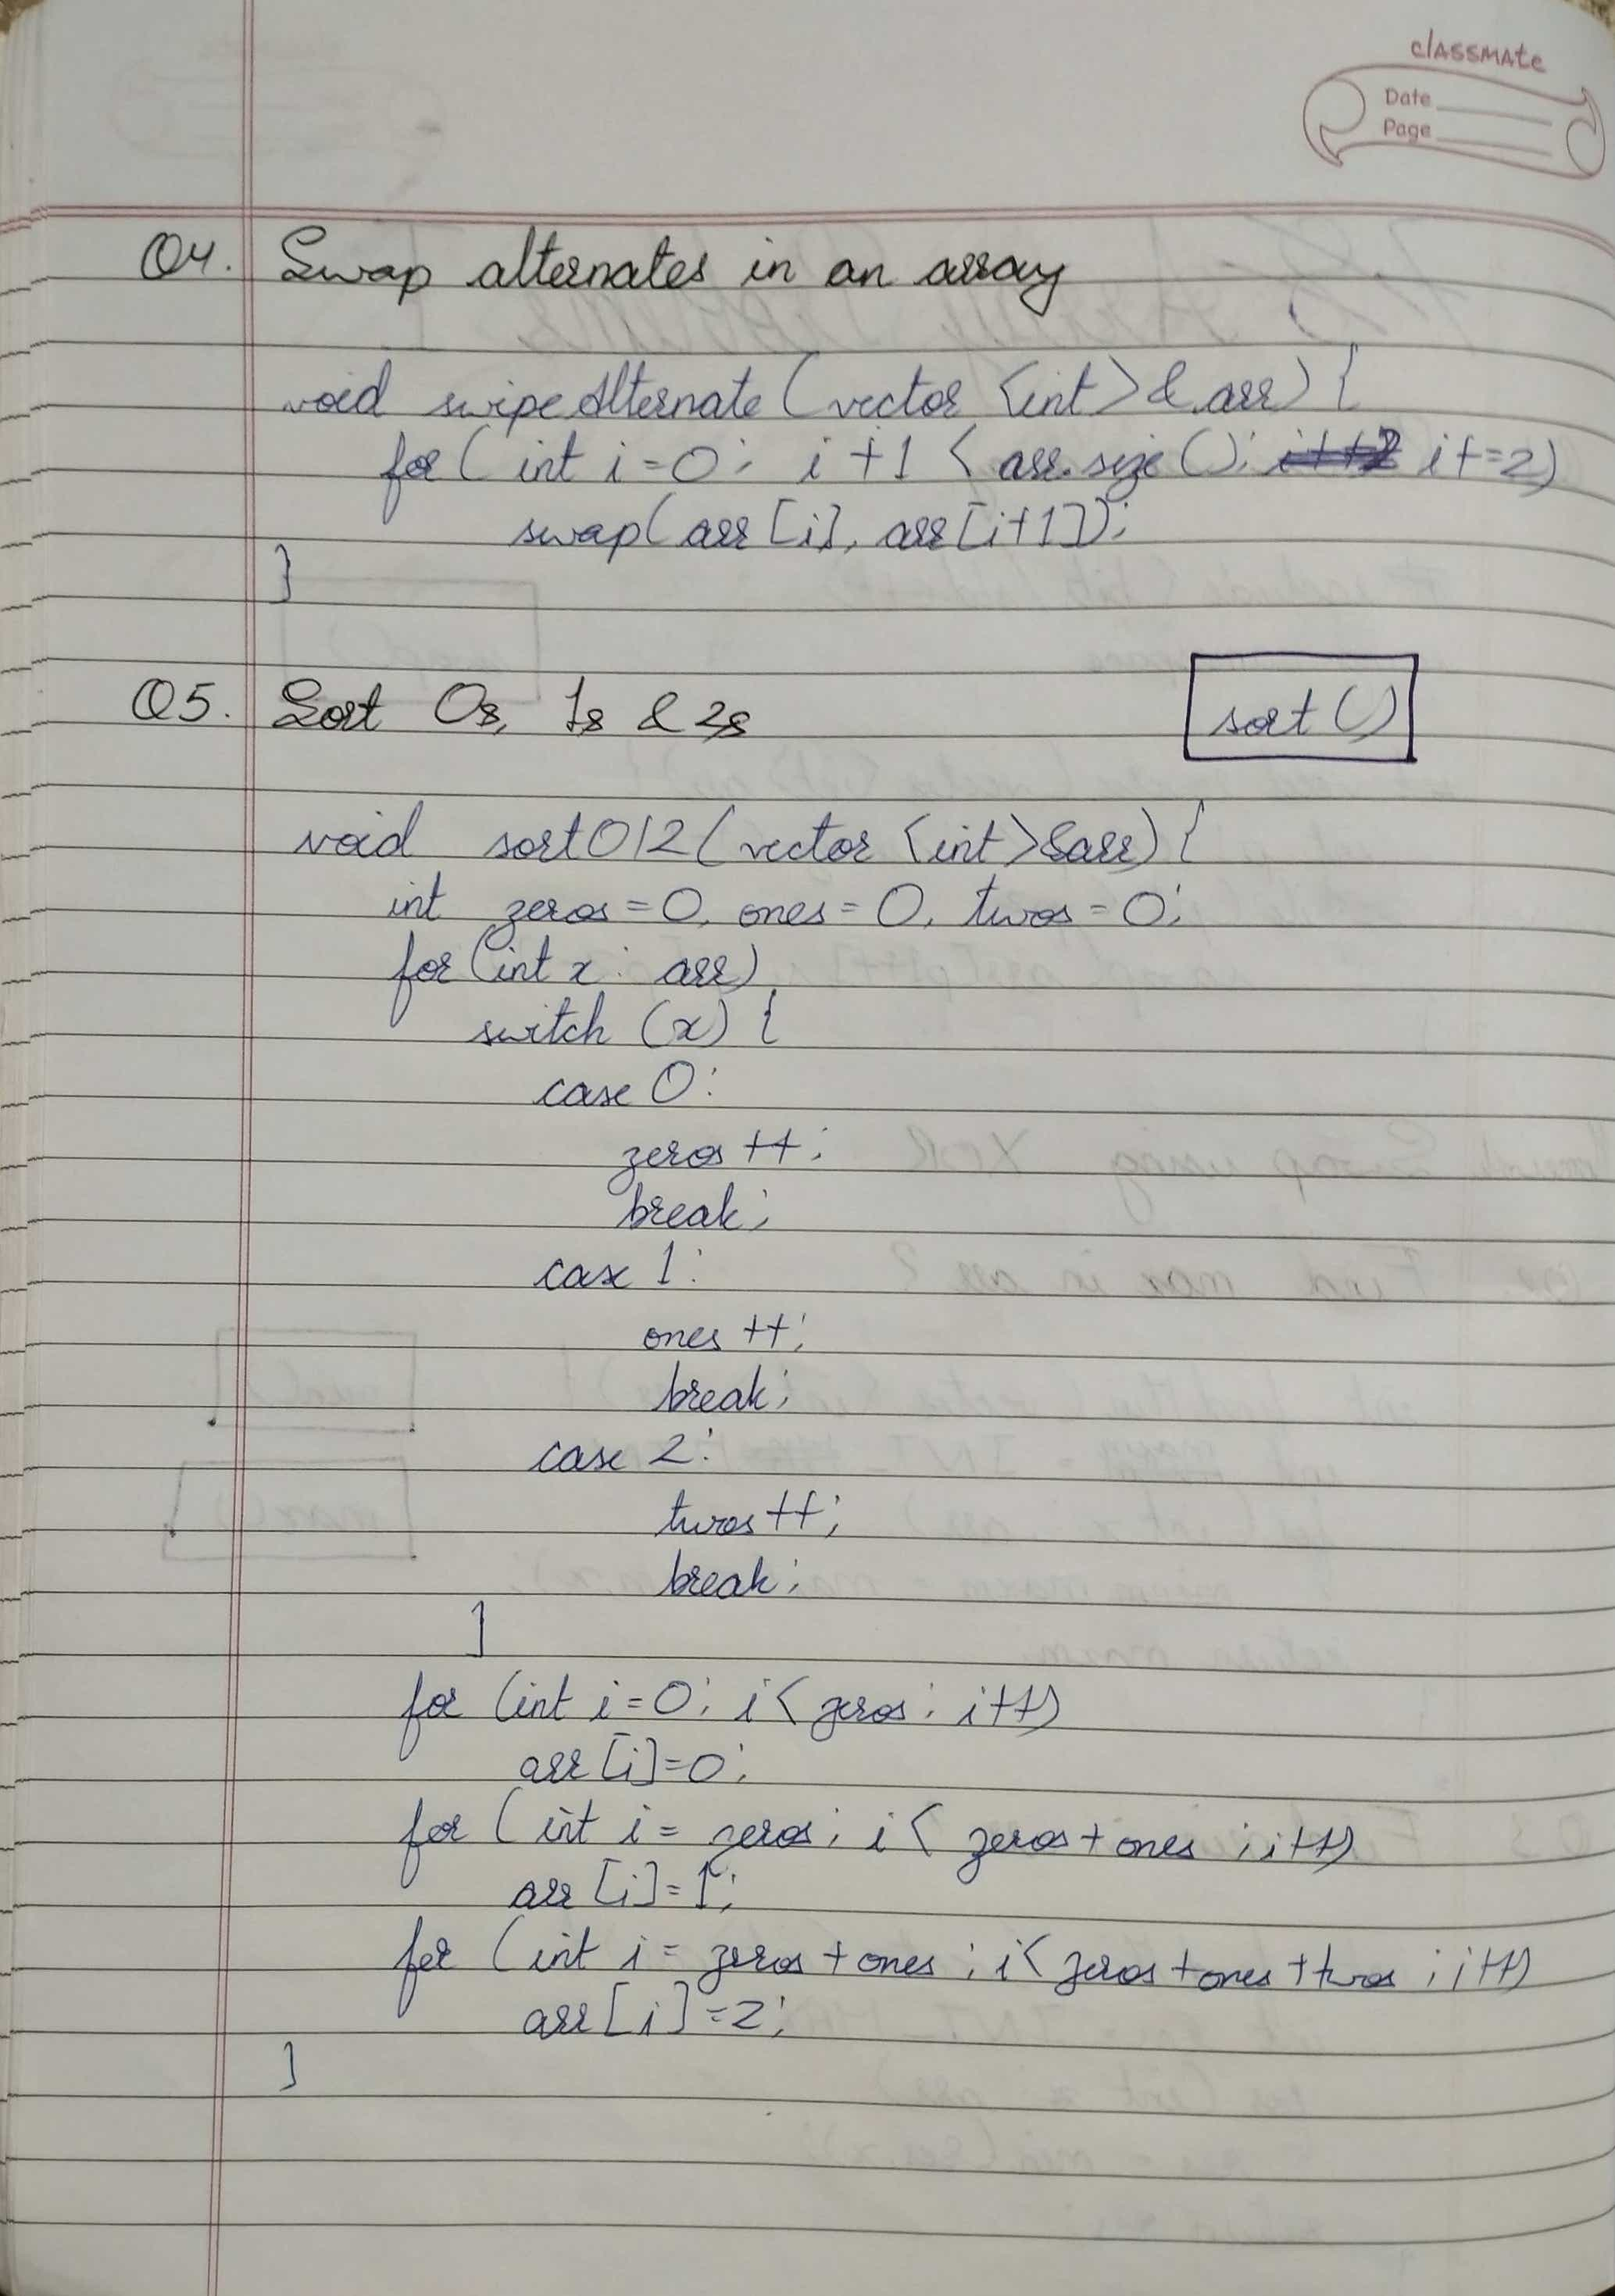 classmate
Date
Page
Q4. Swap alternates in an array
void swipeAlternate (vector <int> & arr) {
for (int i=0; i+1 < arr.size(); i+=2)
swap(arr[i], arr[i+1]);
}
Q5. Sort 0s, 1s & 2s
sort()
void sort012(vector <int>&arr) {
int zeros=0, ones=0, twos=0;
for (int x : arr)
switch (x) {
case 0:
zeros++;
break;
case 1:
ones++;
break;
case 2:
twos++;
break;
}
for (int i=0; i< zeros; i++)
arr[i]=0;
for (int i= zeros; i< zeros+ones; i++)
arr[i]=1;
for (int i= zeros+ones; i< zeros+ones+twos; i++)
arr[i]=2;
}